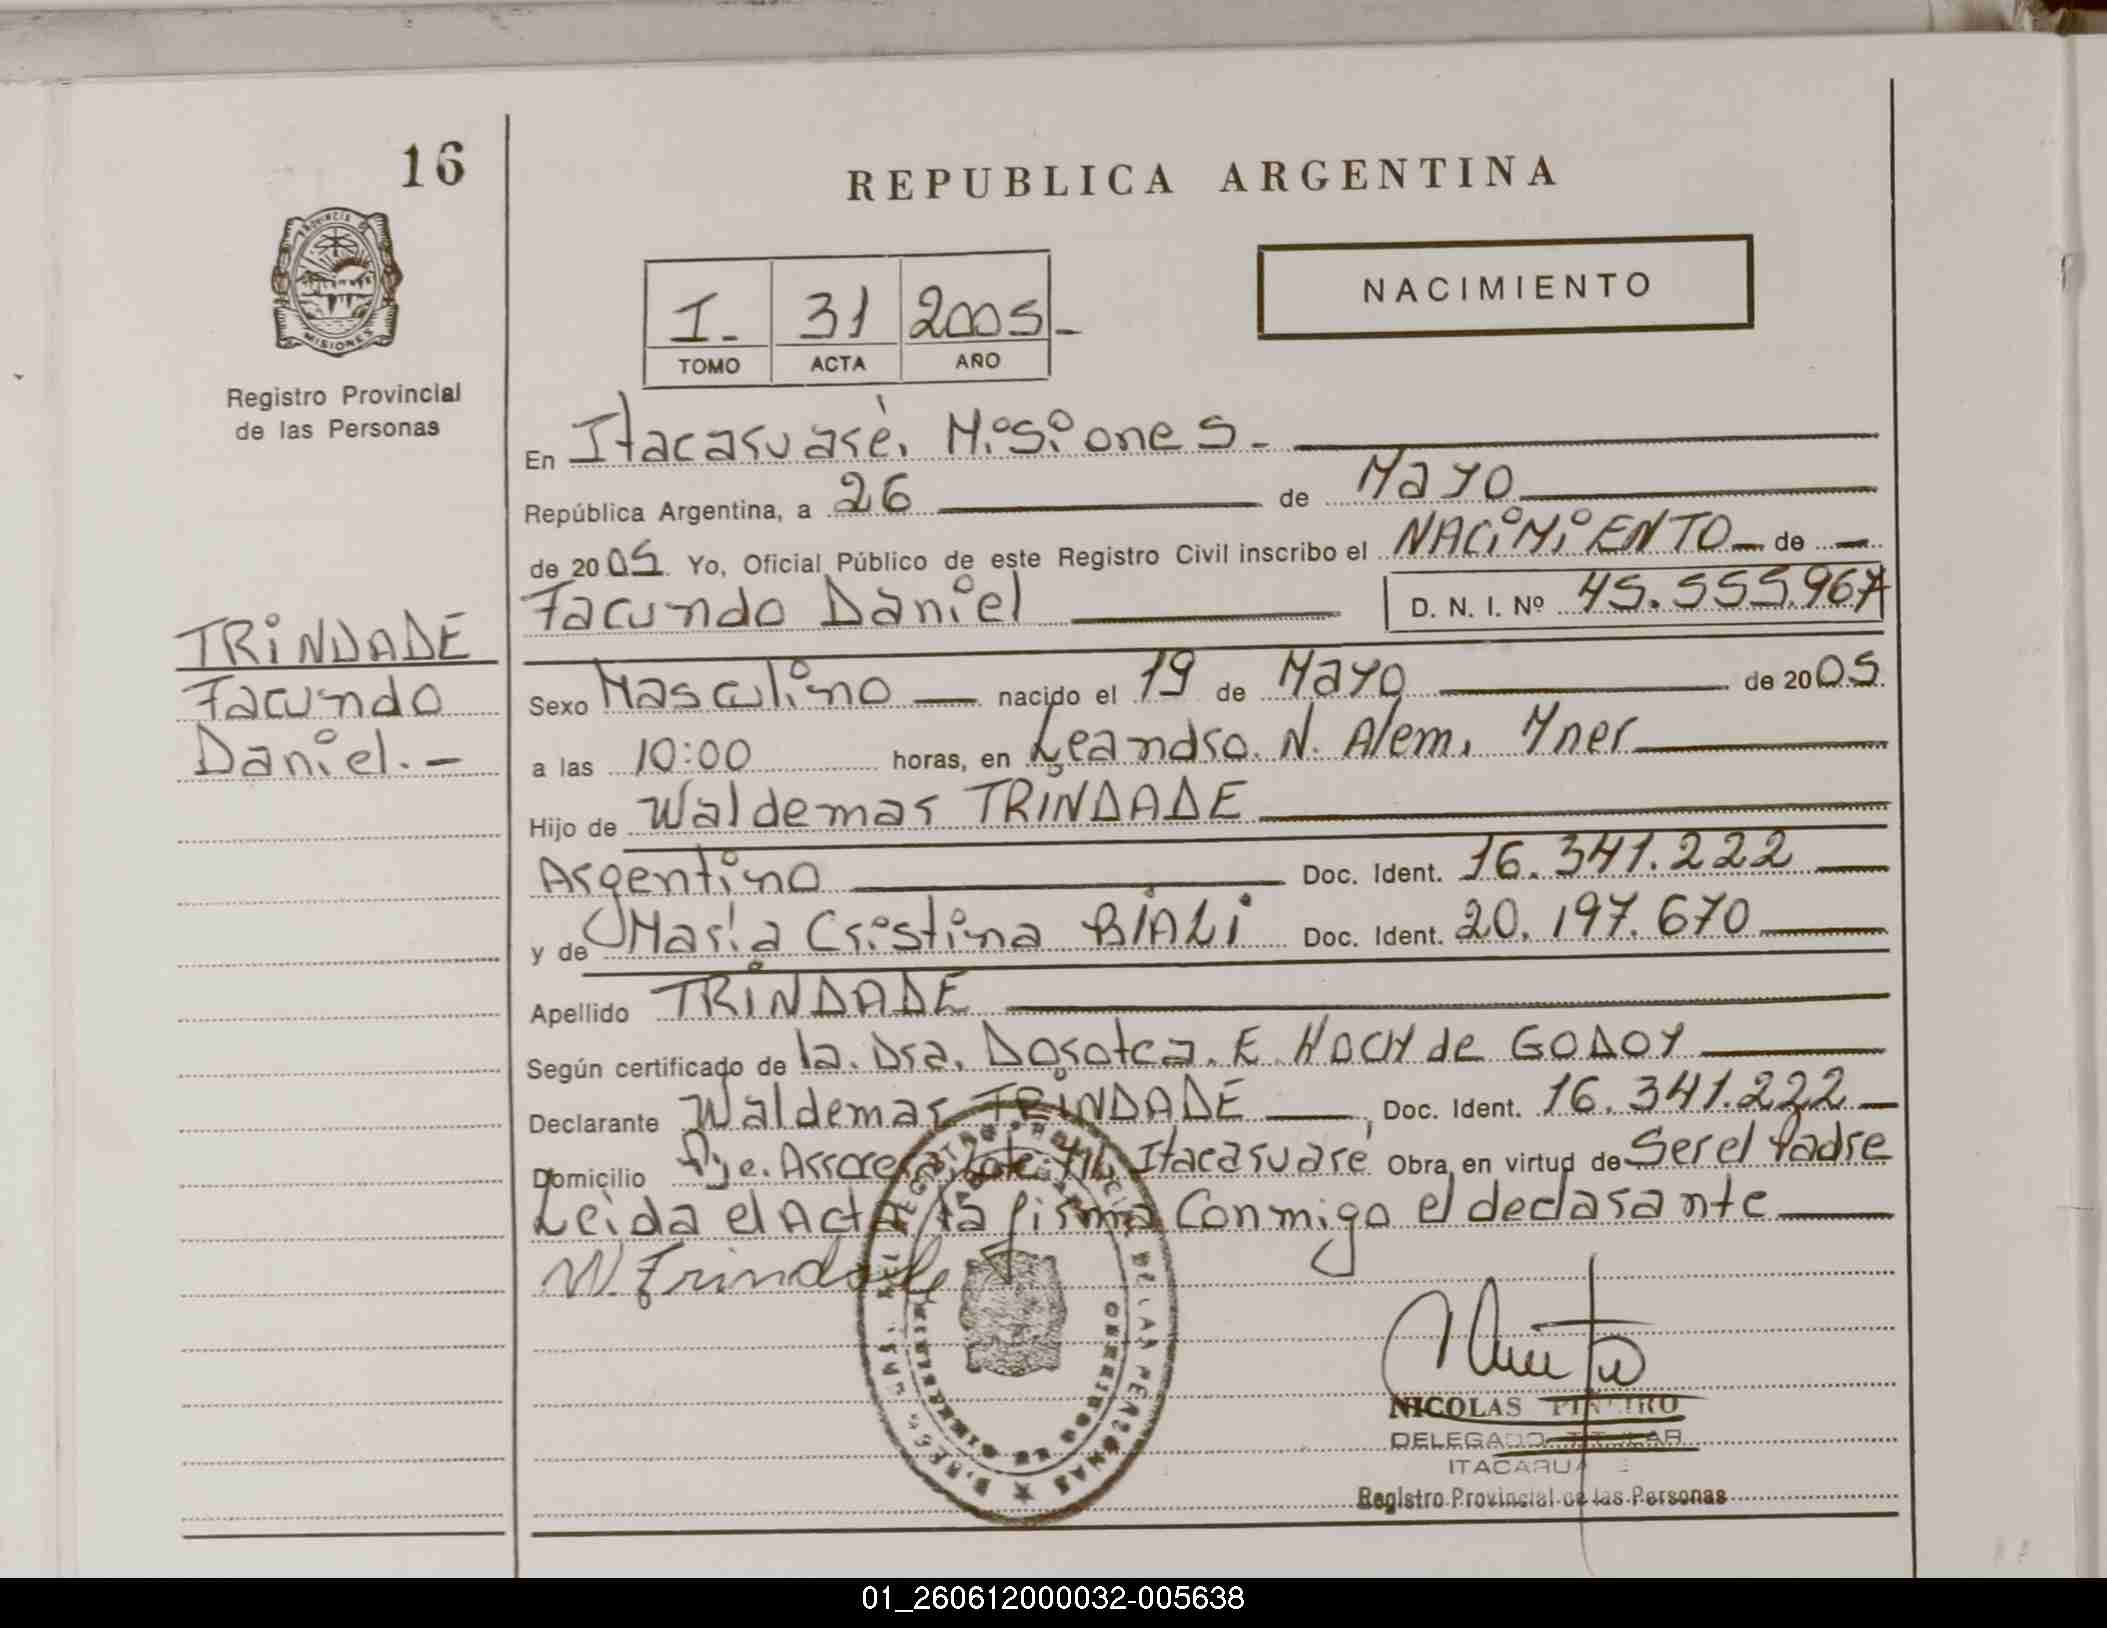 16
REPUBLICA ARGENTINA
PROVINCIA DE
MISIONES
Registro Provincial
de las Personas
I- 31 2005-
TOMO ACTA AÑO
NACIMIENTO
En Itacaruaré, Misiones.-
República Argentina, a 26 de Mayo
de 2005 Yo, Oficial Público de este Registro Civil inscribo el NACIMIENTO de
Facundo Daniel D. N. I. Nº 45.555.967
TRINDADE
Facundo
Daniel.-
Sexo Masculino nacido el 19 de Mayo de 2005
a las 10:00 horas, en Leandro. N. Alem,
Hijo de Waldemar TRINDADE
Argentino Doc. Ident. 16.341.222
y de María Cristina BIALI Doc. Ident. 20.197.670
Apellido TRINDADE
Según certificado de la. Dra. Dorotea. E. HOCH de GODOY
Declarante Waldemar TRINDADE, Doc. Ident. 16.341.222
Domicilio Lote Itacaruaré Obra en virtud de Ser el Padre
Leida el Acta la firma Conmigo el declarante
W. Trindade
NICOLAS
DELEGADO TITULAR
ITACARUA
Registro Provincial de las Personas
01_260612000032-005638